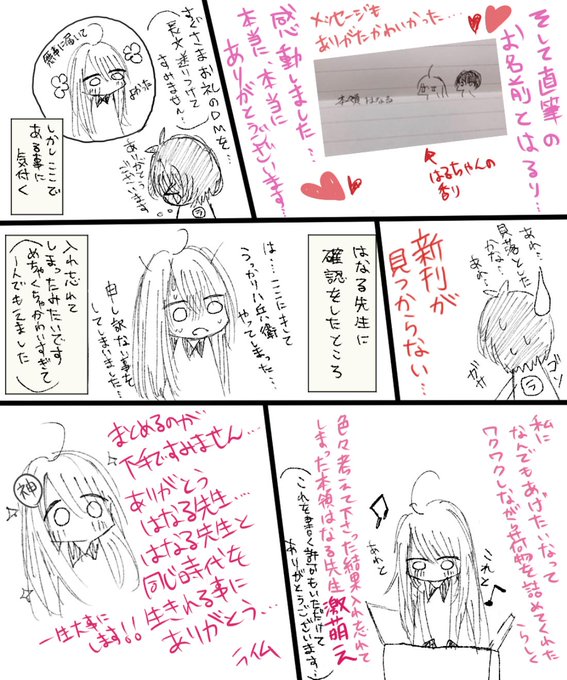 そして直筆の
お名前とはるり…
メッセージも
ありがたかわいかった…
本領はなる
はるちゃんの
香り
感動しました…
本当に、本当に
ありがとうございます…
さっそくさまお礼のDMを…
長文送りつけて
すみません…
無事に届いて
よかった
ありがとう
ございます
ラ
しかしここで
ある事に
気付く
あれ…
見落とした
かな…?
あわ…
ガサ
ゴソ
ラ
新刊が
見つからない…
はなる先生に
確認をしたところ
は…ここにきて
うっかり八兵衛
やってしまった…
申し訳ない事を
してしまいました…
入れ忘れて
しまったみたいです
めちゃくちゃかわいすぎて
一人でもえました
私に
なんでもあげたいなって
ワクワクしながら荷物を詰めてくれた
らしく
これと
あれと
色々考えて下さった結果入れ忘れて
しまった本領はなる先生激萌え
これを書く許可もいただけて
ありがとうございます…
まとめるのが
下手ですみません…
神
ありがとう
はなる先生…
はなる先生と
同じ時代を
生きれる事に
ありがとう…
一生大事に
します!!
ライム